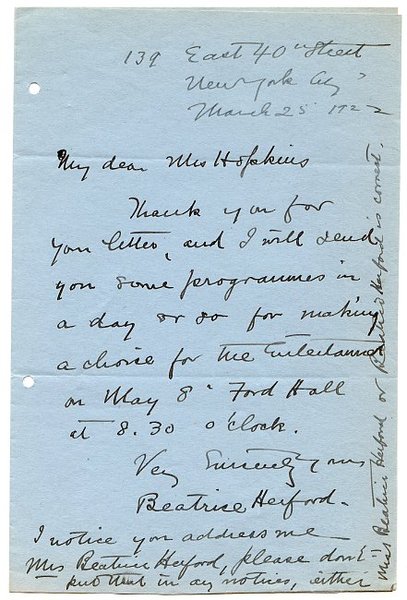 139 East 40th Street
New York City
March 25 1922
My dear Mrs Hopkins
Thank you for
your letter, and I will send
you some programmes in
a day or so for making
a choice for the Entertainment
on May 8th Ford Hall
at 8.30 o'clock.
Very Sincerely yours
Beatrice Herford.
I notice you address me
Mrs Beatrice Herford, please don't
put that in any notices, either
"Miss Beatrice Herford or Beatrice Herford is correct.